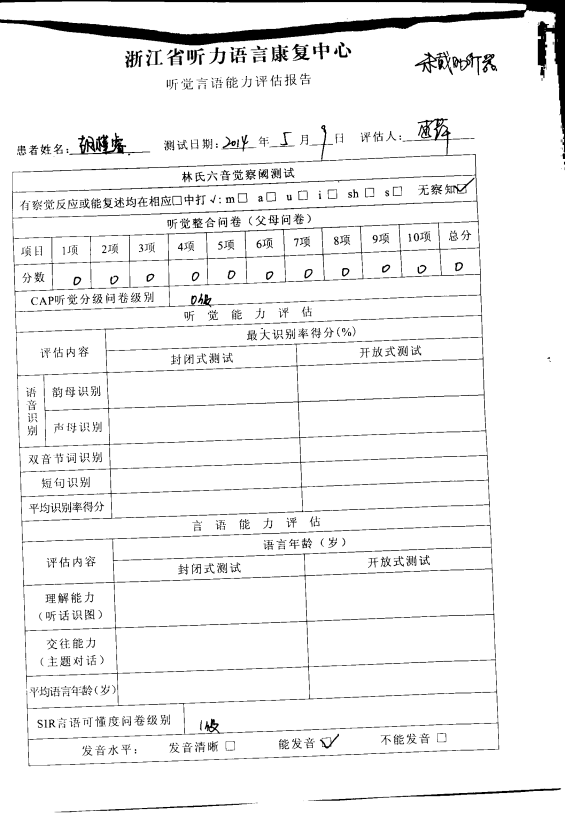 浙江省听力语言康复中心
未戴助听器
听觉言语能力评估报告
患者姓名: 胡 睿 测试日期: 2014 年 5 月 9 日 评估人:
林氏六音觉察阈测试
有察觉反应或能复述均在相应□中打√: m□ a□ u□ i□ sh□ s□ 无察知☑
听觉整合问卷（父母问卷）
项目 1项 2项 3项 4项 5项 6项 7项 8项 9项 10项 总分
分数 0 0 0 0 0 0 0 0 0 0 0
CAP听觉分级问卷级别 0级
听觉能力评估
评估内容 最大识别率得分(%)
封闭式测试 开放式测试
语音识别 韵母识别
声母识别
双音节词识别
短句识别
平均识别率得分
言语能力评估
评估内容 语言年龄（岁）
封闭式测试 开放式测试
理解能力
（听话识图）
交往能力
（主题对话）
平均语言年龄(岁)
SIR言语可懂度问卷级别 1级
发音水平: 发音清晰□ 能发音☑ 不能发音□